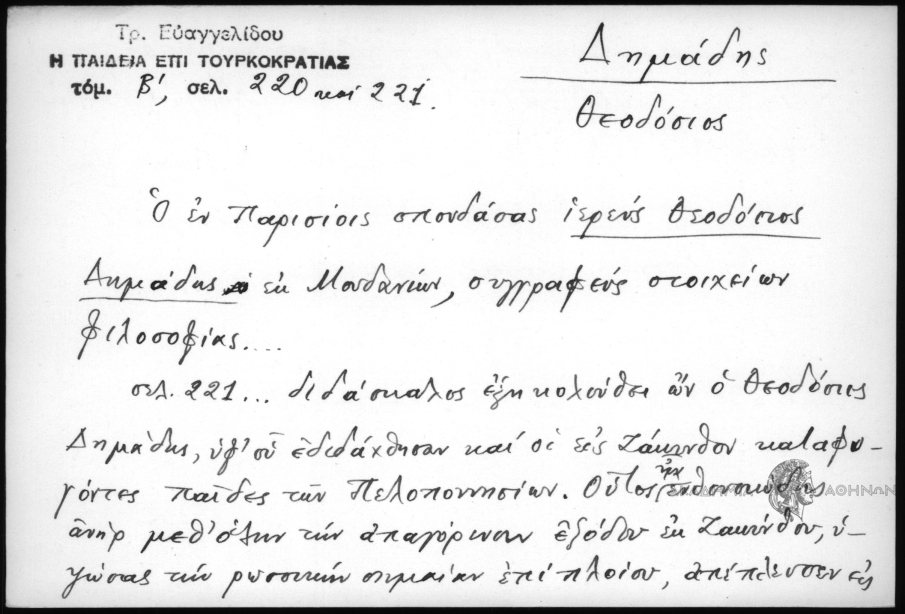 Τρ. Εὐαγγελίδου
Η ΠΑΙΔΕΙΑ ΕΠΙ ΤΟΥΡΚΟΚΡΑΤΙΑΣ
τόμ. Β', σελ. 220 καί 221.
Δημάδης
Θεοδόσιος
Ὁ ἐν Παρισίοις σπουδάσας ἱερεύς Θεοδόσιος
Δημάδης ἐκ Μουδανιῶν, συγγραφεύς στοιχείων
φιλοσοφίας....
σελ. 221... διδάσκαλος ἐξηκολούθει ὤν ὁ Θεοδόσιος
Δημάδης, ὑφ' οὗ ἐδιδάχθησαν καί οἱ εἰς Ζάκυνθον καταφυ-
γόντες παῖδες τῶν Πελοποννησίων. Οὗτος
ἀνήρ μεθ' ὅλην τήν ἀπαγόρευσιν ἐξόδου ἐκ Ζακύνθου, ὑ-
ψώσας τήν ρωσσικήν σημαίαν ἐπί πλοίου, ἀπέπλευσεν εἰς
ΑΘΗΝΩΝ